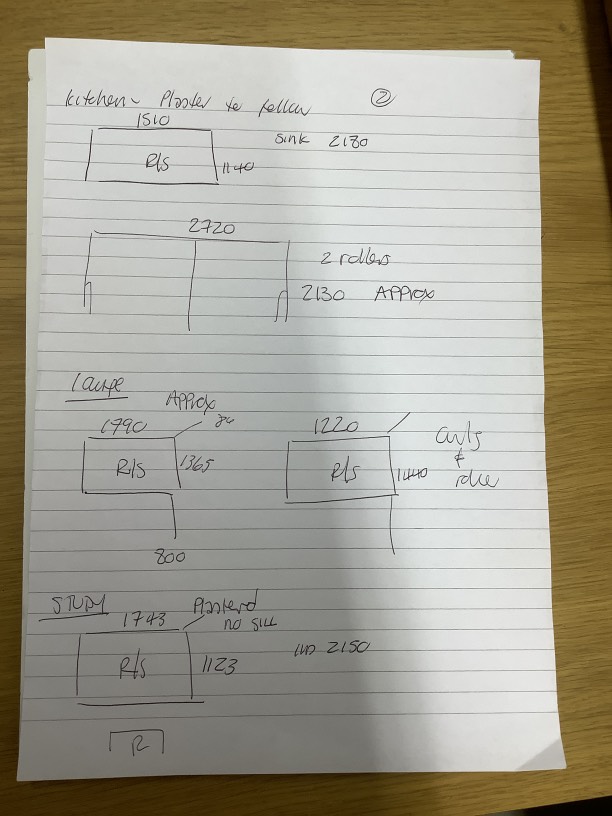 Kitchen - Plaster to follow
②
1510
sink 2180
R/S
1140
2720
2 rollers
2130 APPROX
Lounge
APPROX
1790
1220
R/S
1365
R/S
1440
&
800
STUDY
Plasterd
1743
no sill
R/S
1123
2150
R